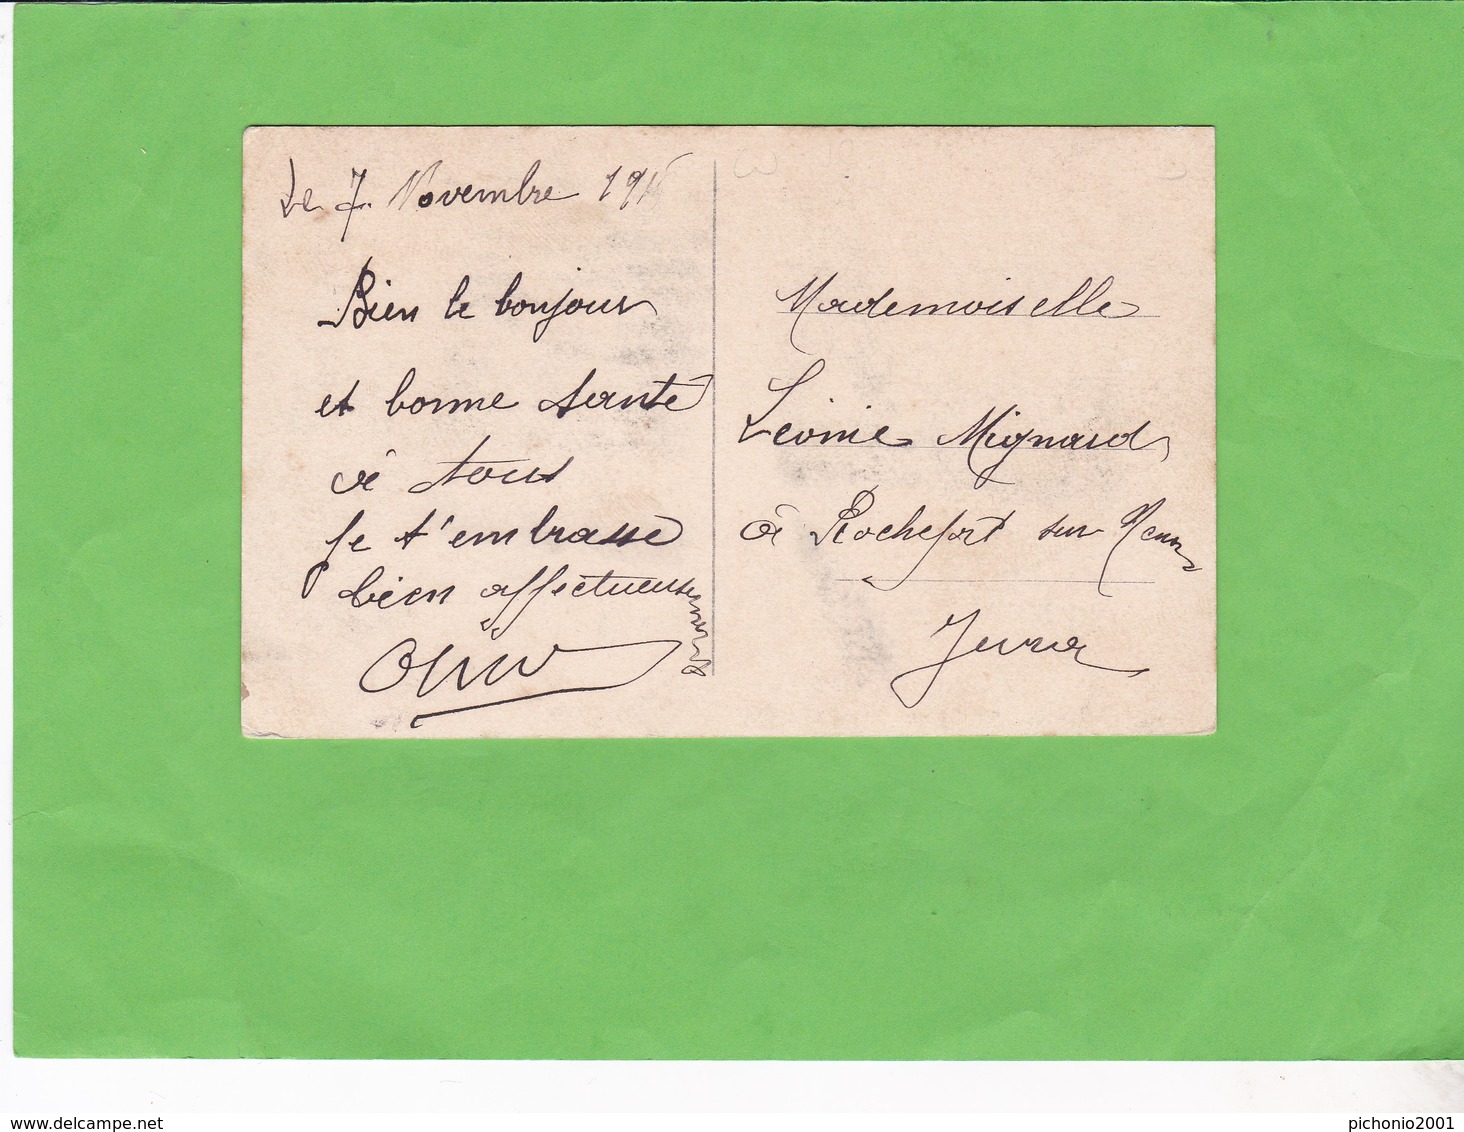 Le 7 Novembre
Bien le bonjour
et bonne santé
à tous
Je t'embrasse
bien affectueusement
Mademoiselle
Léonie Mignard
à Rochefort sur Nenon
Jura
www.delcampe.net
pichonio2001